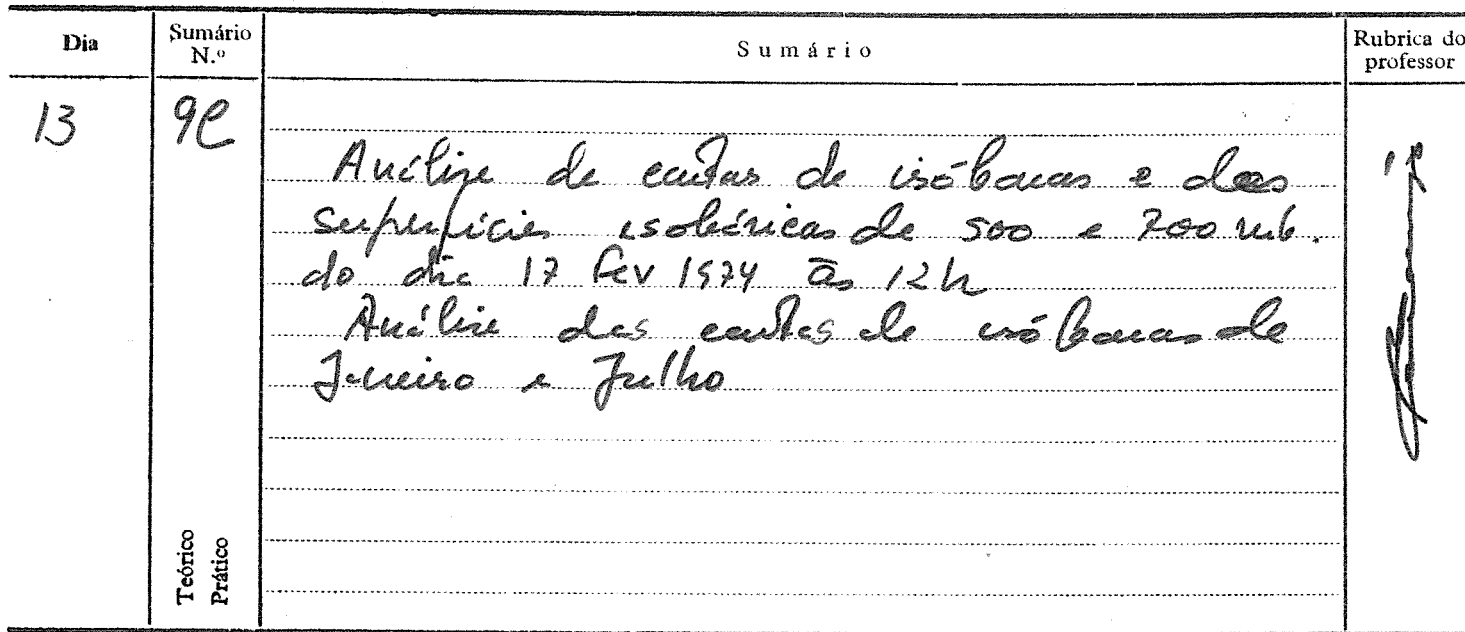 Dia
Sumário N.º
Sumário
Rubrica do professor
13
9
Análise de cartas de isóbaras e das
superfícies isobáricas de 500 e 700 mb.
do dia 17 fev 1974 às 12h
Análise das cartas de isóbaras de
Janeiro e Julho
Teórico
Prático